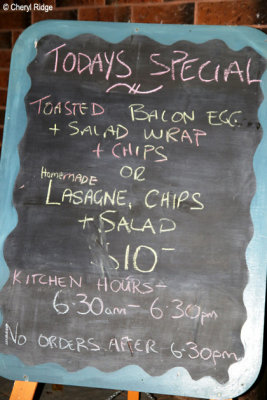 © Cheryl Ridge
TODAYS SPECIAL
TOASTED BACON EGG
+ SALAD WRAP
+ CHIPS
OR
Homemade
LASAGNE, CHIPS
+ SALAD
$10-
KITCHEN HOURS-
6:30am - 6:30pm
NO ORDERS AFTER 6:30pm